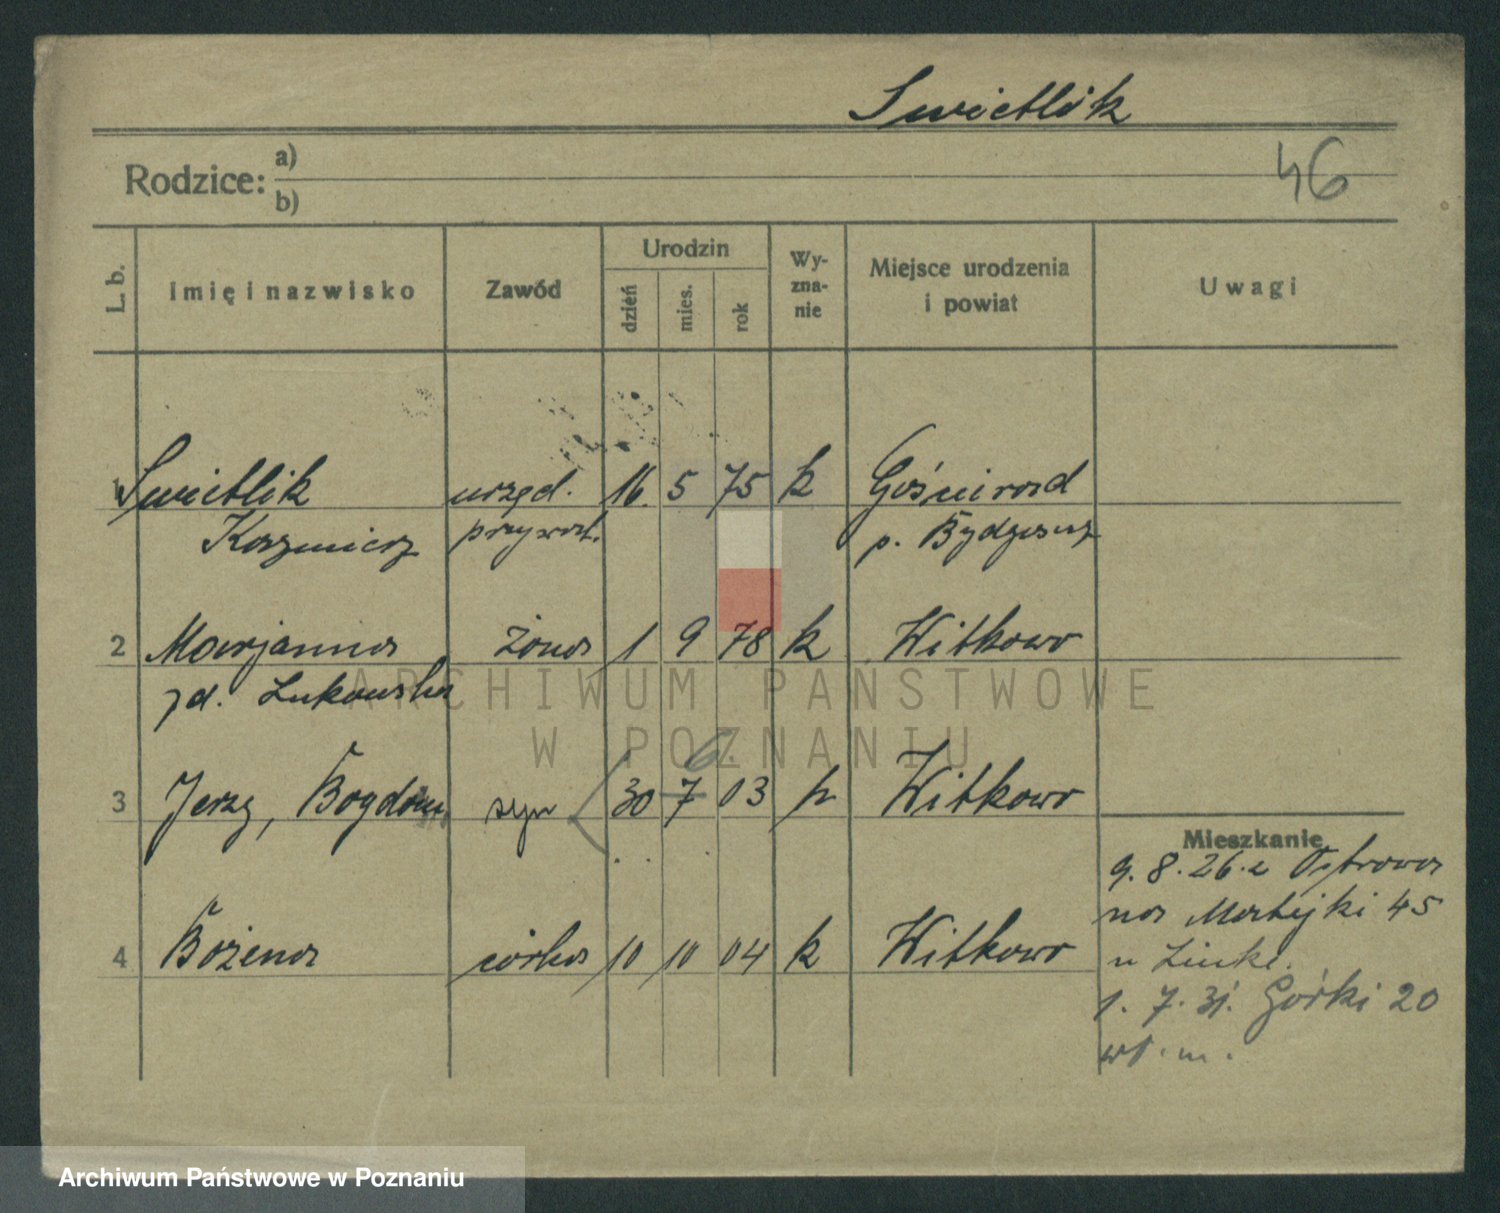 Swietlik
Rodzice: a)
b)
46
L. b.
Imię i nazwisko
Zawód
Urodzin
dzień
mies.
rok
Wy-
zna-
nie
Miejsce urodzenia
i powiat
Uwagi
1 Swietlik urzęd. 16. 5 75 k Gościeradz
Kazmierz prywat. p. Bydgoszcz
2 Marjanna żona 1 9 78 k Witkowo
zd. Lukowska
6.
3 Jerzy, Bogdan syn 30 7 03 k Witkowo
Mieszkanie
9. 8. 26. z Ostrowa
na Matejki 45
4 Bożena córka 10 10 04 k Witkowo
u Linke.
1. 7. 31. Górki 20
wł. m.
ARCHIWUM PAŃSTWOWE
W POZNANIU
Archiwum Państwowe w Poznaniu